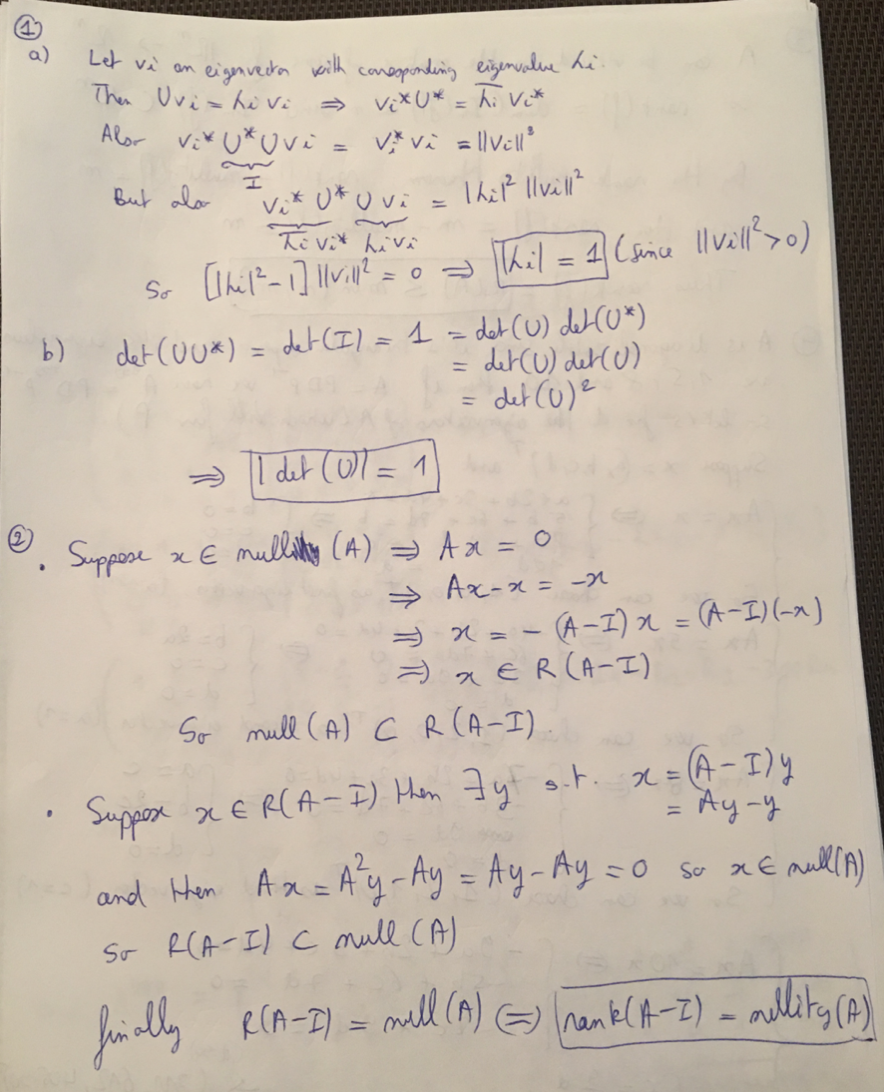 ①
a) Let vi an eigenvector with corresponding eigenvalue λi.
Then Uvi = λi vi ⇒ vi*U* = λ̅i vi*
Also vi* U* U vi = vi* vi = ||vi||²
I
But also vi* U* U vi = |λi|² ||vi||²
λ̅i vi* λi vi
So [|λi|² - 1] ||vi||² = 0 ⇒ |λi| = 1 (since ||vi||² > 0)
b) det(UU*) = det(I) = 1 = det(U) det(U*)
= det(U) det(U)
= det(U)²
⇒ |det(U)| = 1
②
. Suppose x ∈ null (A) ⇒ Ax = 0
⇒ Ax-x = -x
⇒ x = -(A-I)x = (A-I)(-x)
⇒ x ∈ R(A-I)
So null(A) ⊂ R(A-I).
. Suppose x ∈ R(A-I) then ∃y s.t. x = (A-I)y
= Ay-y
and then Ax = A²y - Ay = Ay - Ay = 0 so x ∈ null(A)
So R(A-I) ⊂ null(A)
finally R(A-I) = null(A) ⇔ rank(A-I) = nullity(A)